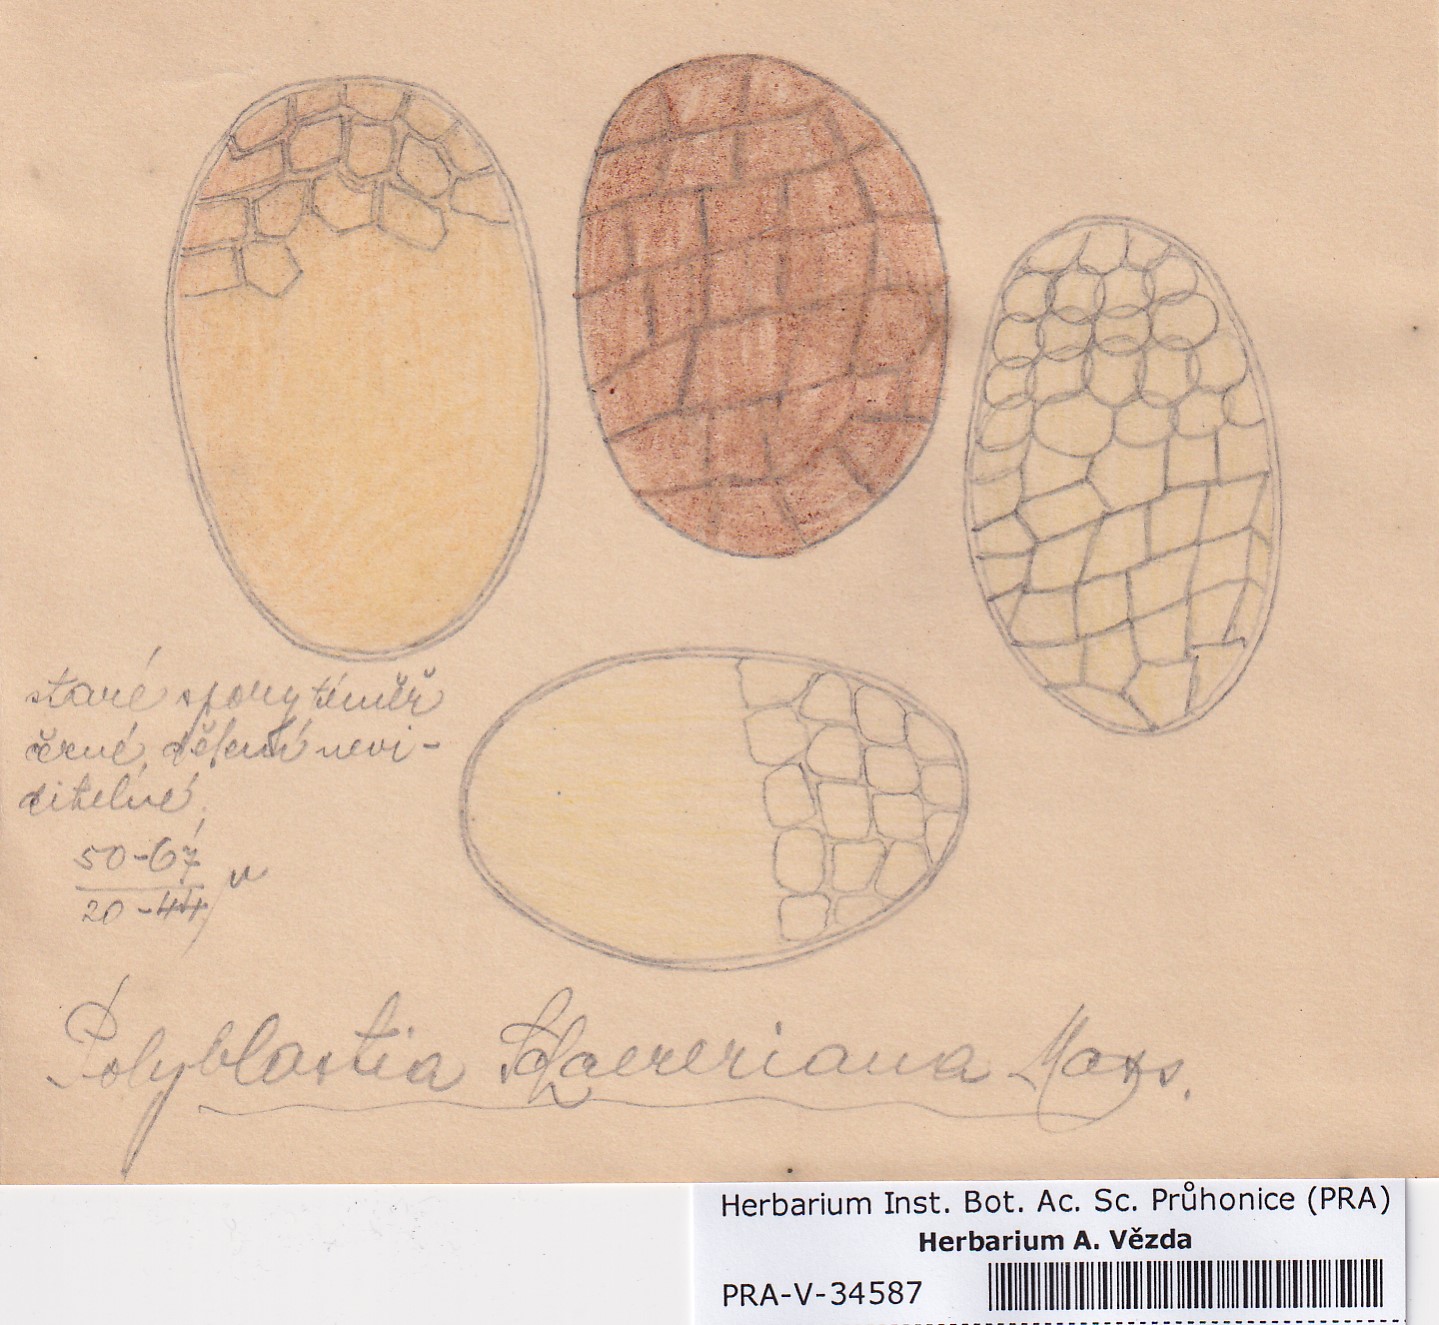 staré spory téměř
černé, dělení nevi-
ditelné.
50-67
20-44 μ
Polyblastia Schaereriana Mass.
Herbarium Inst. Bot. Ac. Sc. Průhonice (PRA)
Herbarium A. Vězda
PRA-V-34587